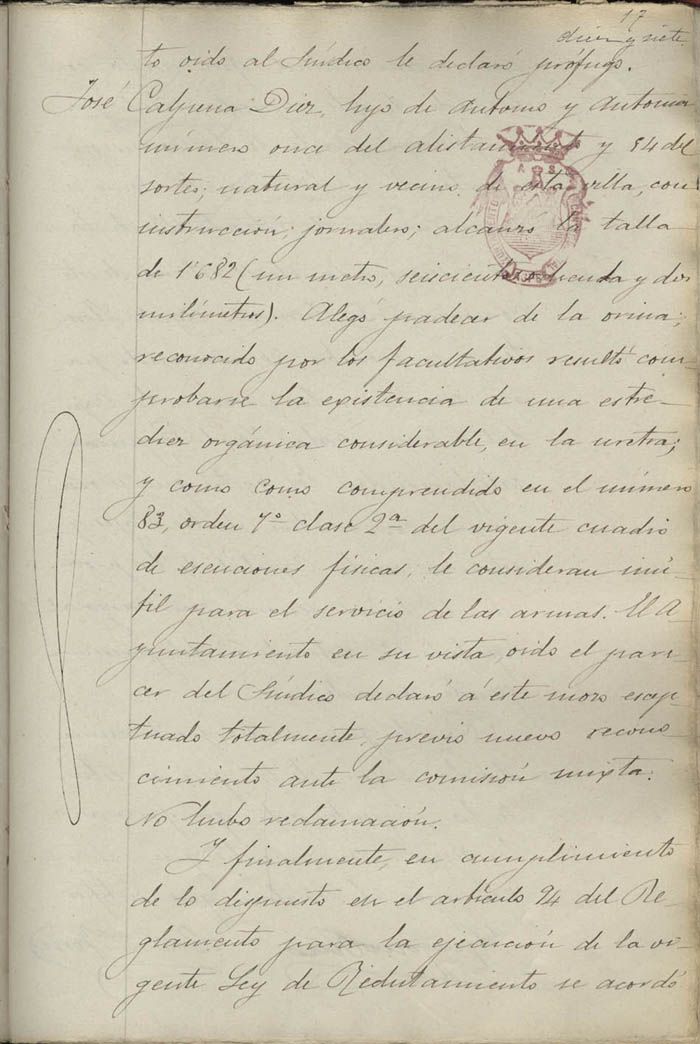 17
diez y siete
to oido al Síndico le declaró prófugo.
José Calpena Diez, hijo de Antonio y Antonia
número once del alistamient y 54 del
sorteo; natural y vecino de esta villa, con
instrucción; jornalero; alcanzó la talla
de 1'682 (un metro, seiscientos ochenta y dos
milímetros). Alegó padecer de la orina;
reconocido por los facultativos resultó com-
probarse la existencia de una estre-
chez orgánica considerable, en la uretra;
y como como comprendido en el número
83, orden 7º clase 2ª del vigente cuadro
de esenciones físicas, le consideran inú-
til para el servicio de las armas. El A
yuntamiento en su vista, oido el pare-
cer del Síndico declaró á este mozo escep-
tuado totalmente previo nuevo recono-
cimiento ante la comisión mixta.
No hubo reclamación.
Y finalmente, en cumplimiento
de lo dispuesto en el artículo 94 del Re-
glamento para la ejecución de la vi-
gente Ley de Reclutamiento se acordó